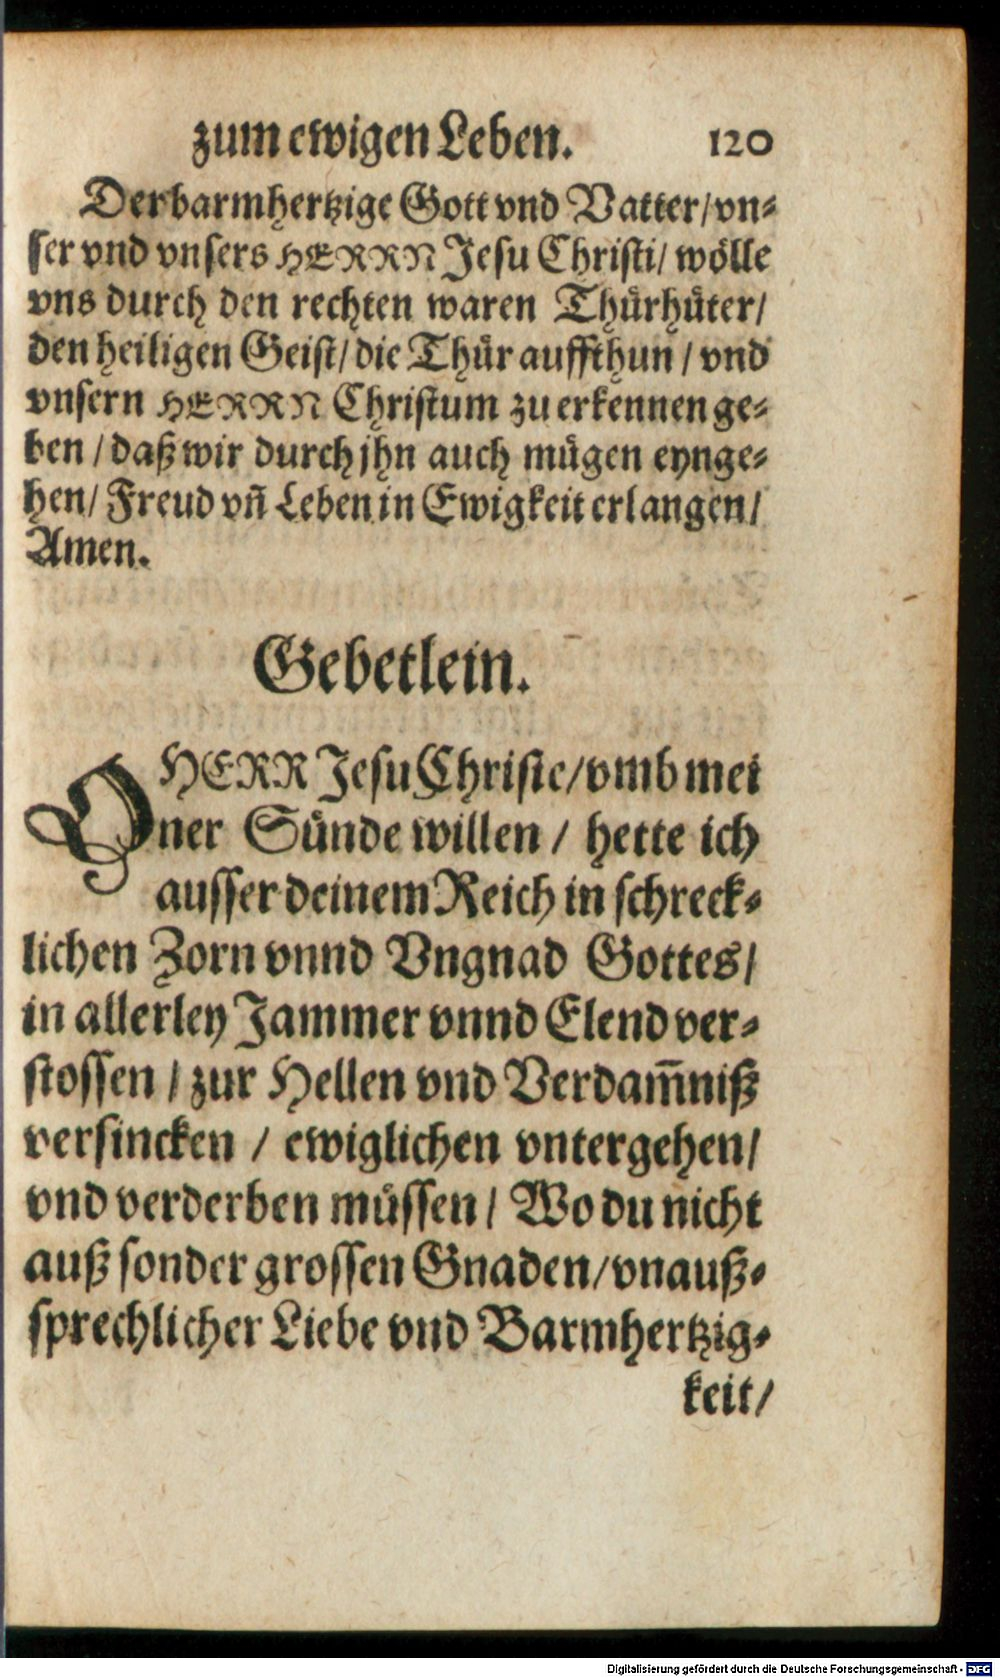 zum ewigen Leben. 120
Der barmhertzige Gott vnd Vatter/ vn-
ser vnd vnsers HERRN Jesu Christi/ wölle
vns durch den rechten waren Thürhüter/
den heiligen Geist/ die Thür auffthun / vnd
vnsern HERRN Christum zu erkennen ge-
ben / daß wir durch jhn auch mügen eynge-
hen/ Freud vñ Leben in Ewigkeit erlangen/
Amen.
Gebetlein.
O HERR Jesu Christe/ vmb mei
ner Sünde willen / hette ich
ausser deinem Reich in schreck-
lichen Zorn vnnd Vngnad Gottes/
in allerley Jammer vnnd Elend ver-
stossen / zur Hellen vnd Verdam̄niß
versincken / ewiglichen vntergehen/
vnd verderben müssen / Wo du nicht
auß sonder grossen Gnaden/ vnauß-
sprechlicher Liebe vnd Barmhertzig-
keit/
Digitalisierung gefördert durch die Deutsche Forschungsgemeinschaft - DFG